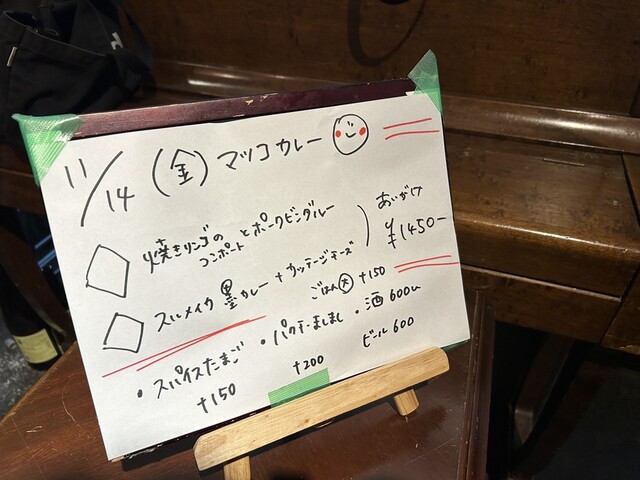 11/14 (金) マツコカレー
焼きリンゴの
コンポート とポークビンダルー
あいがけ
¥1450-
スルメイカ墨カレー+カッテージチーズ
ごはん大 +150
・スパイスたまご
+150
・パクチーましまし
+200
・酒 600~
ビール 600